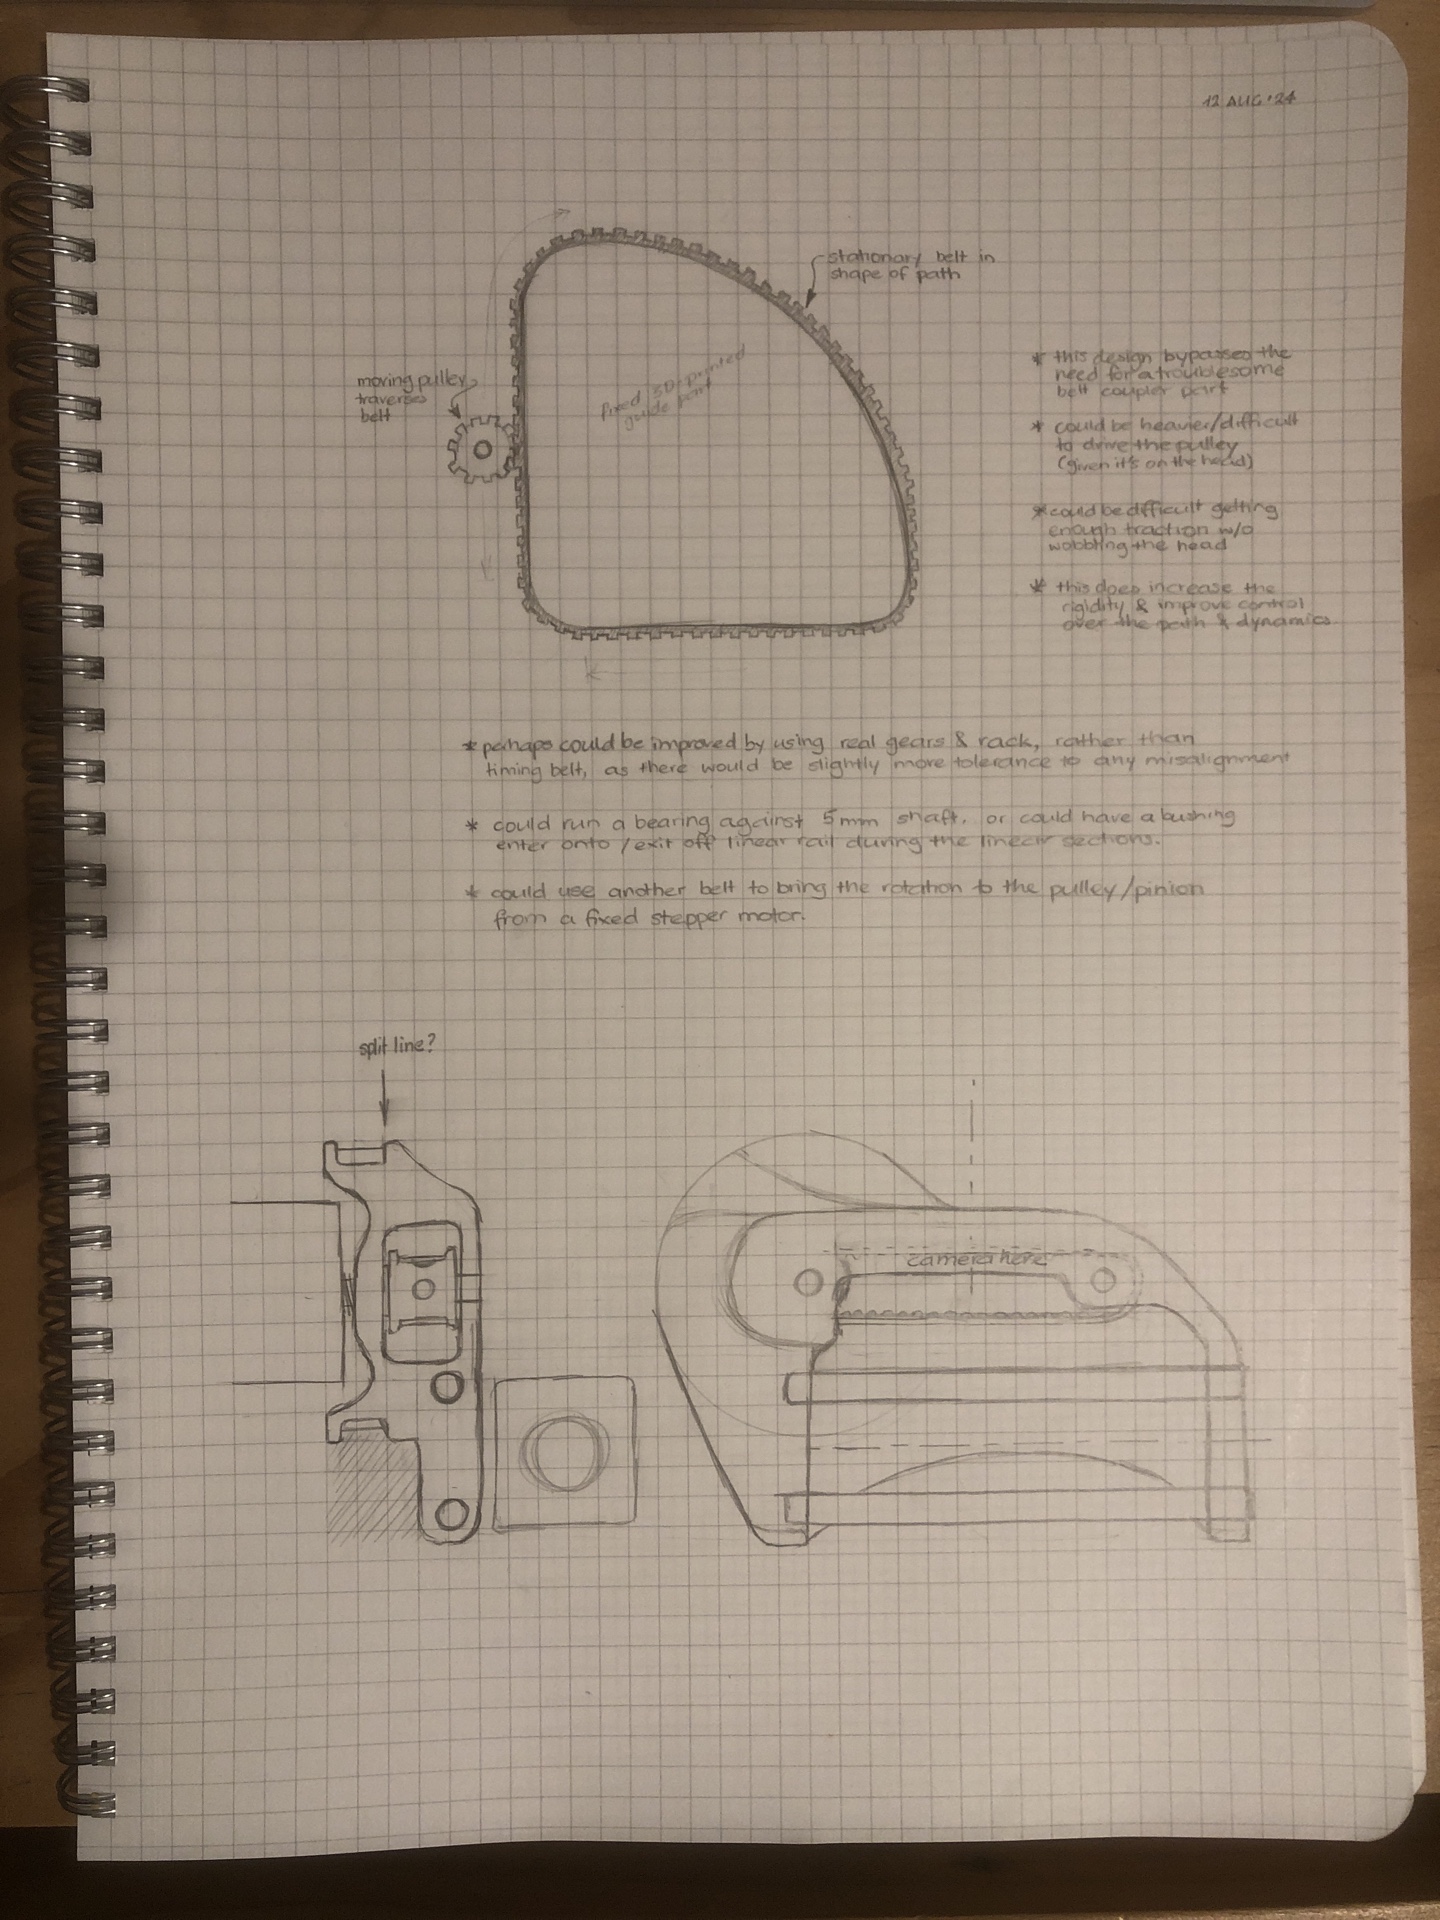 12 AUG '24
stationary belt in
shape of path
moving pulley
traverses
belt
fixed 3D-printed
guide part
* this design bypasses the
need for a troublesome
belt coupler part
* could be heavier/difficult
to drive the pulley
(given it's on the head)
* could be difficult getting
enough traction w/o
wobbling the head
* this does increase the
rigidity & improve control
over the path & dynamics
* perhaps could be improved by using real gears & rack, rather than
timing belt, as there would be slightly more tolerance to any misalignment
* could run a bearing against 5mm shaft, or could have a bushing
enter onto / exit off linear rail during the linear sections.
* could use another belt to bring the rotation to the pulley/pinion
from a fixed stepper motor.
split line?
camera here